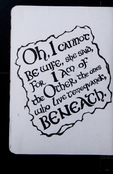 Oh, I cannot
be wife, she said,
for I am of
the Other, the ones
who live downwards,
BENEATH.